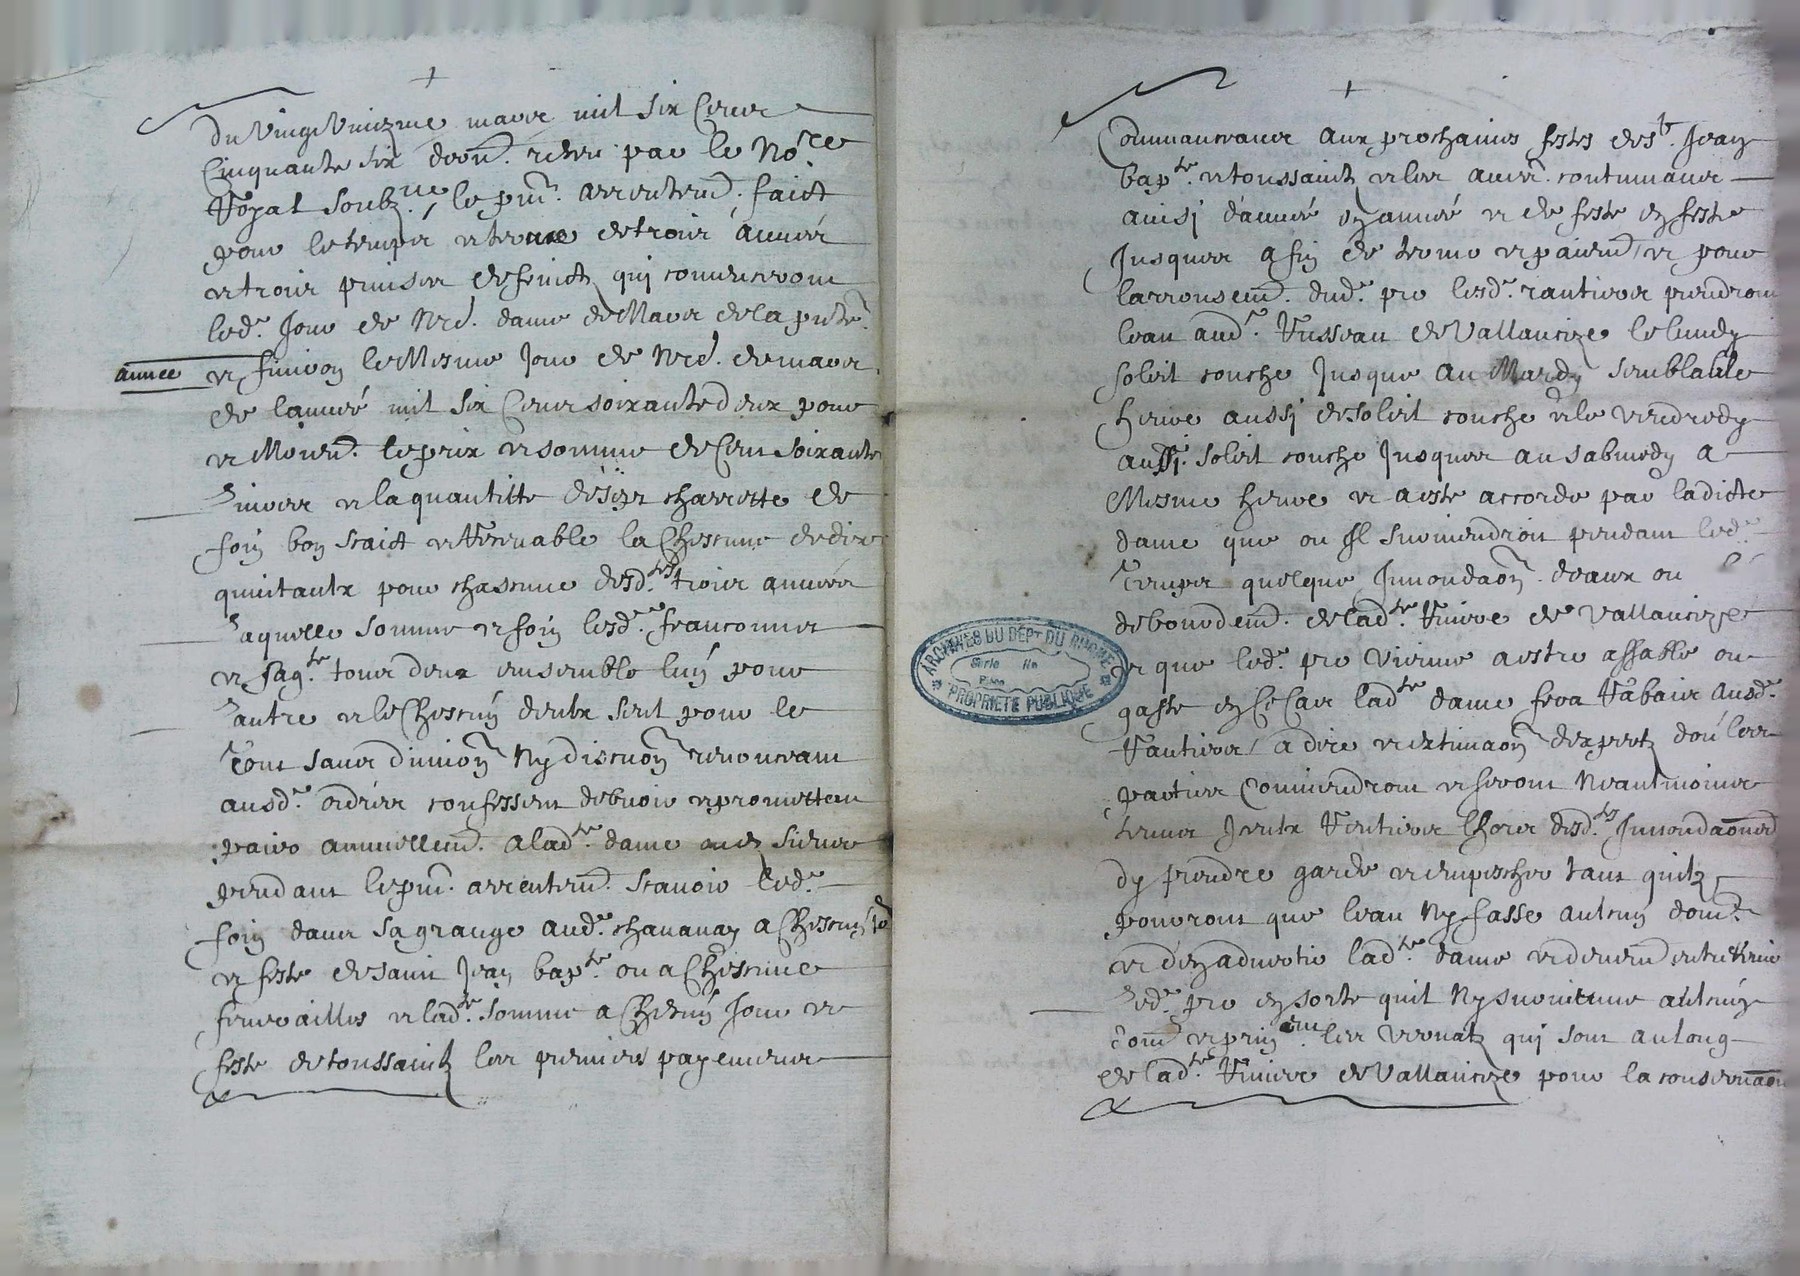 du vingt uniezme mars mil six cens
cinquante six devnt. receu par le Nore
Royal soubz.né, le pnt. arrentemt. faict
pour le temps et terme de trois années
et trois prinses de fruictz qui commenceront
led.e jour de Nre. dame de Mars de la pnte.
année et finiron le Mesme jour de Nre. de mars
de l'année mil six cens soixante deux pour
et Moient. le prix et somme de cent soixante
livres et la quantitté de charrette de
foin bon et recevable la Chescune de dix
quintaulx pour chascune desd.tes trois années
Laquelle somme et foin lesd.
et tous deux ensemble l'un pour
l'autre et le Chescun d'eulx seul pour le
tout sans division Ny discuon renonceant
ausd. confessent debvoir et promettent
paier annuellemt. a lad.te dame
pendant le pnt. arrentemt. scavoir led.e
foin dans sa grange aud.e chavanay a Chescun jor
et feste de saint Jean bap.te ou a Chescune
et lad.te somme a Chescun Jour et
feste de toussainctz les premiers payemens
Commanceant aux prochaines festes de st. Jean
bap.te et toussainctz et les aues. continuant
ainsi d'année en année et de feste en feste
Jusques a fin de terme et paiemt. et pour
l'arrousemt. dud.e pre lesd.e rantiers prendront
l'eau aud.e Russeau de Vallancize le lundy
soleil couche Jusque au Mardy semblable
heure aussi de soleil couche et le vendredy
aussi soleil couche Jusques au sabmedy a
Mesme heure et a este accorde par ladicte
dame que ou Il surviendroit pendant led.e
temps quelque Innondaon d'eaux ou
debordemt. de lad.te Riviere de vallancize
et que led.e pre vienne a estre assable ou
gaste en ce cas lad.te dame fera Rabais ausd.e
Rantiers a dire et extimaon d'expertz dont les
parties conviendront et seront Neantmoings
tenus Iceulx Rentiers lhors desd.tes Innondaons
dy prendre garde et empescher tant quilz
pourront que l'eau Ny fasse aulcun dom.e
et d'en advertir lad.te dame
led.e pre en sorte quil Ny survienne aulcung
dom.e et les vernatz qui sont au long
de lad.te Riviere de Vallancize pour la conservaon
ARCHIVES DU DEPT DU RHONE
Serie
PROPRIETE PUBLIQUE